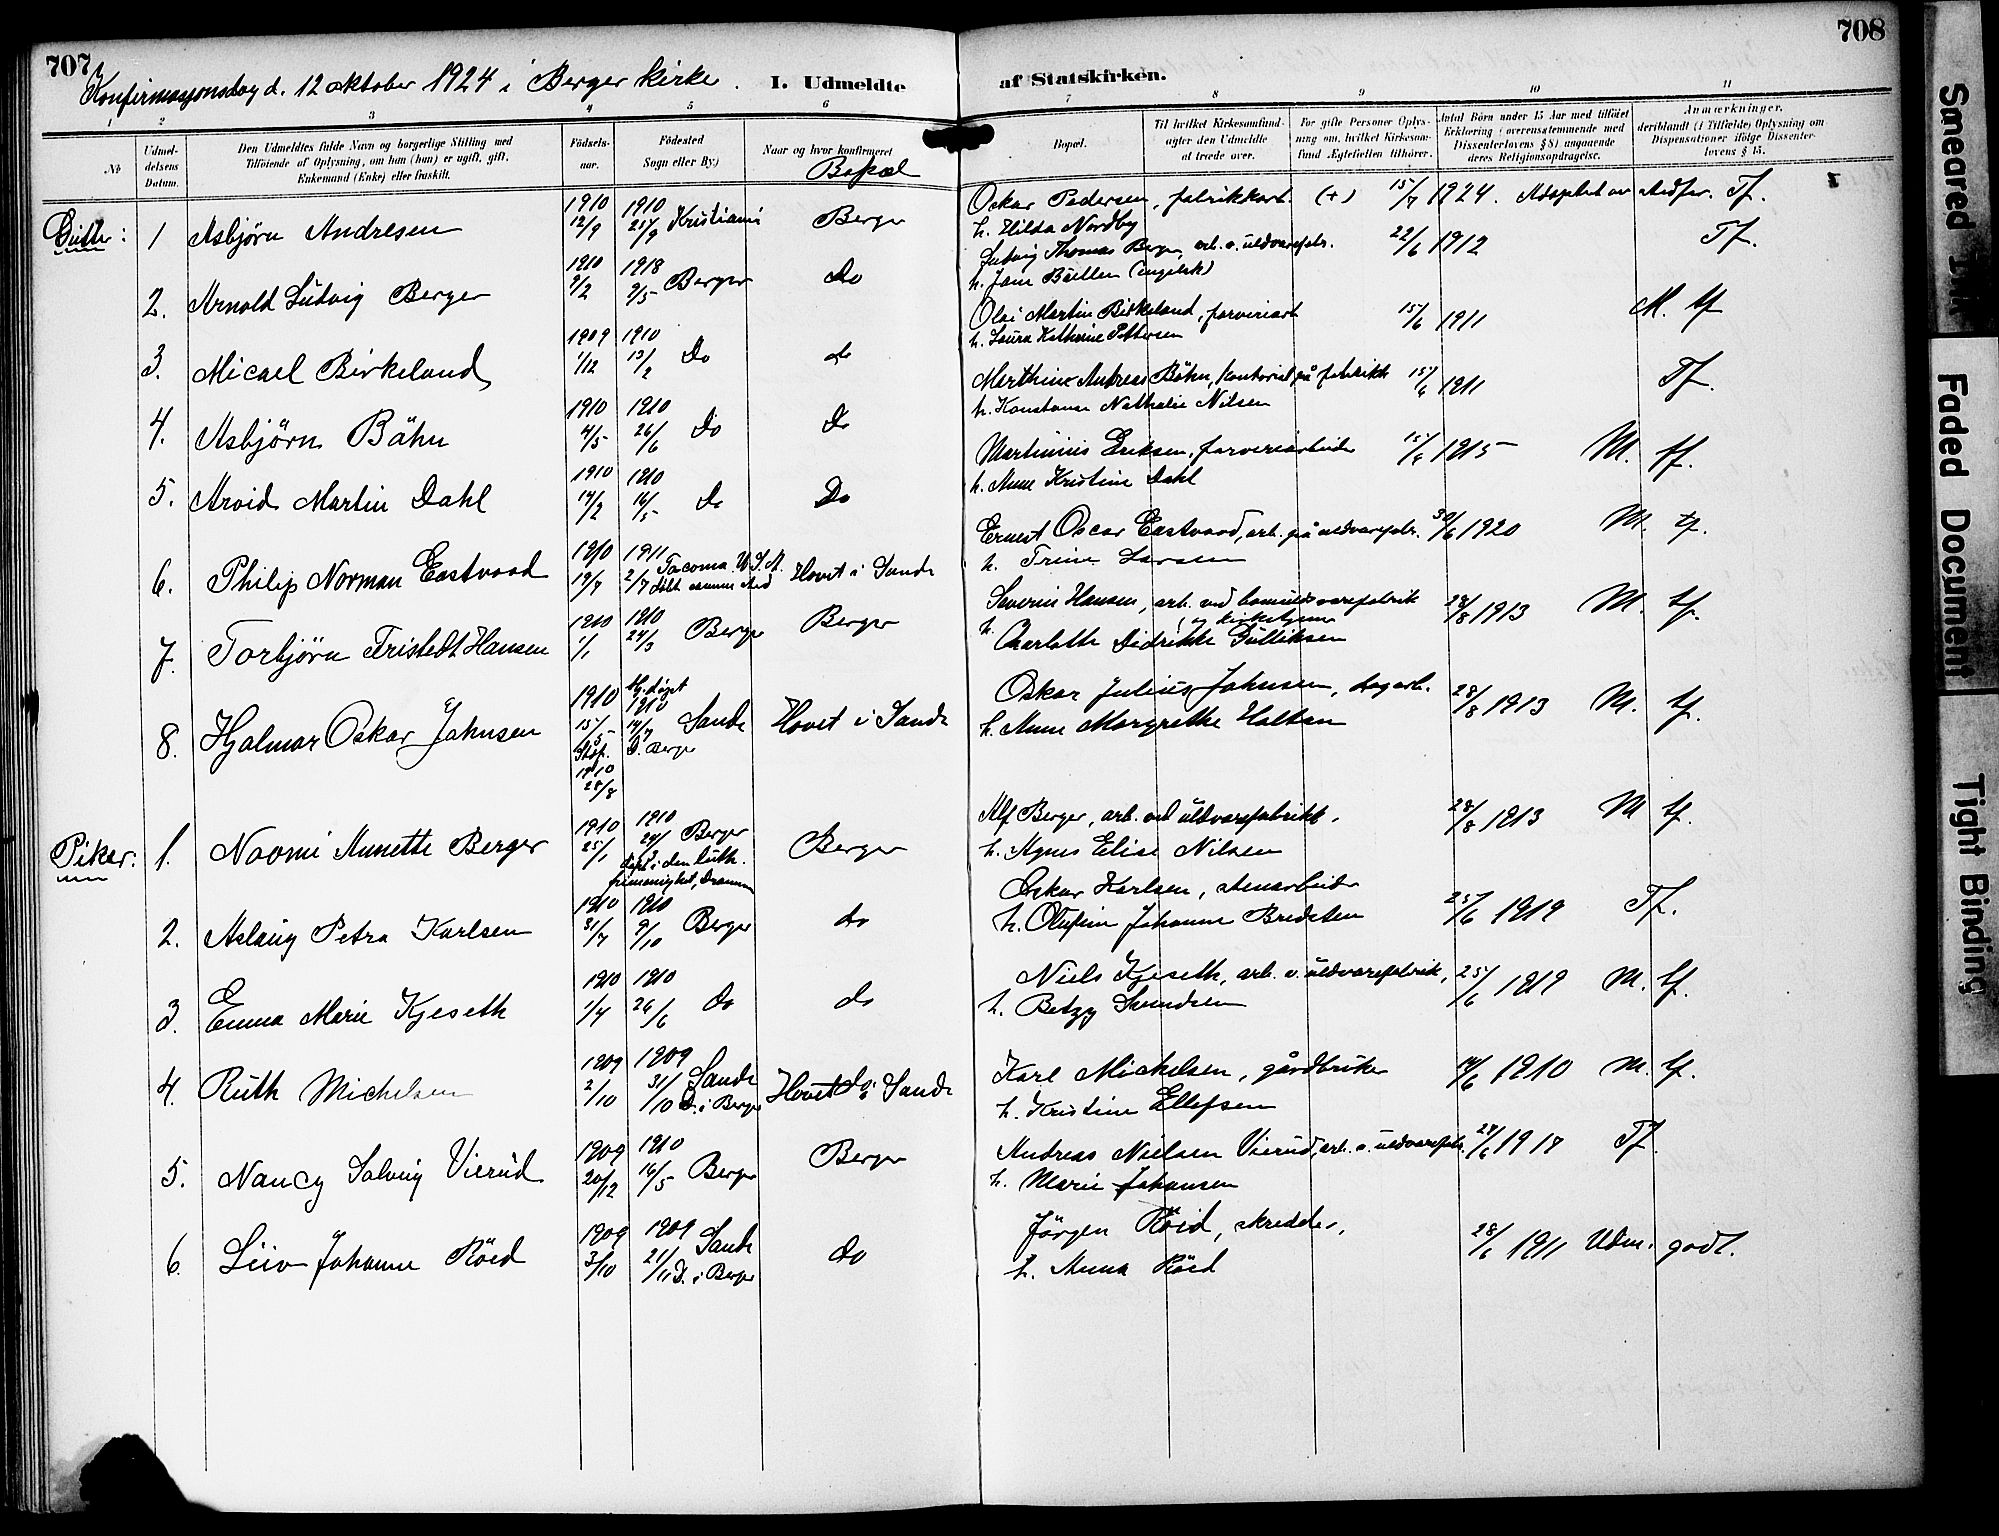 707
708
Konfirmasjonsdag d. 12 oktober 1924 i Berger kirke.
I. Udmeldte
af Statskirken.
1 2 3 4 5 6 7 8 9 10 11
No
Udmel-
delsens
Datum.
Den Udmeldtes fulde Navn og borgerlige Stilling med
Tilføiende af Oplysning, om han (hun) er ugift, gift,
Enkemand (Enke) eller fraskilt.
Fødsels-
aar.
Fødested
Sogn eller By.)
Naar og hvor konfirmeret
Bopæl
Bopæl.
Til hvilket Kirkesamfund
agter den Udmeldte
at træde over.
For gifte Personer Oplys-
ning om, hvilket Kirkesam-
fund Ægtefællen tilhører.
Antal Børn under 15 Aar med tilføiet
Erklæring (overensstemmende med
Dissenterlovens § 8) angaaende
deres Religionsopdragelse.
Anmærkninger,
deriblandt (i Tilfælde) Oplysning om
Dispensationer ifølge Dissenter-
lovens § 15.
Gutter: 1 Asbjörn Andresen 1910 12/9 1910 25/9 Kristiania Berger Oskar Pedersen, fabrikkarb. (+) 15/7 1924. Adoptert av Tf.
h. Hilda Nordby
2. Arnold Ludvig Berger 1910 9/2 1918 9/5 Berger Do Ludvig Thomas Berger, arb. v. uldvarefabr. 22/6 1912 Tf.
h. Jane (engelsk)
3. Micael Birkeland 1909 1/12 1910 13/2 Do do Olai Martin Birkeland, farveriarb 15/6 1911 M. tf
h. Laura Kathrine Pettersen
4. Asbjörn Båhn 1910 4/5 1910 26/6 Do Do Marthinus Andreas Båhn, kontorist på fabrikk 15/6 1911 Tf.
h. Konstanse Nathalie Nilsen
5. Arvid Martin Dahl 1910 14/2 1910 16/5 Do Do Martinius Eriksen, farveriarbeider 15/6 1915 M. tf.
h. Anne Kristine Dahl
6. Philip Norman Eastvood 1910 19/7 1911 2/7 Tacoma U.S.A. döbt samme sted Hovet i Sande Ernest Oscar Eastvood, arb. på uldvarefabr. 30/6 1920 M. tf.
h. Trine Larsen
7. Torbjörn Fristedt Hansen 1910 1/1 1910 24/3 Berger Berger Severin Hansen, arb. ved bomuldsvarefabrik 28/8 1913 M. tf.
og kirketjener
h. Charlotte Didrikke Gulliksen
8. Hjalmar Oskar Johnsen 1910 15/5 Hj. döpt 1910 14/7 Sande Hovet i Sande Oskar Julius Johnsen, dagarb. 28/8 1913 M. tf.
Stadf. 1910 28/8 D. Berger
h. Anne Margrethe Holtan
Piker: 1. Naomi Annette Berger 1910 25/1 1910 Berger Berger Alf Berger, arb. ved uldvarefabrikk. 28/8 1913 M tf.
döpt i den luth.
frimenighet, Drammen
h. Agnes Elise Nilsen
2. Aslaug Petra Karlsen 1910 31/7 1910 9/10 Berger do Oskar Karlsen, stenarbeider 25/6 1919 Tf.
h. Olufine Johanne Bredsten
3. Emma Marie Kjeseth 1910 1/4 1910 26/6 do do Niels Kjeseth, arb. v. uldvarefabrik, 25/6 1919 M. tf.
h. Betzy Svendsen
4. Ruth Michelsen 1909 2/10 1909 31/10 Sande D. i Berger Hovet i Sande Karl Mickelsen, gårdbruker 19/6 1910 M. tf.
h. Kristine Ellefsen
5. Nancy Solveig Vierud 1909 20/12 1910 16/5 Berger Berger Andreas Nielsen Vierud, arb. v. uldvarefabr. 24/6 1917 Tf.
h. Marie Johansen
6. Liv Johanne Röed 1909 3/10 1909 21/11 Sande D. i Berger do Jörgen Röid, skredder, 28/6 1911 Udm. godt.
h. Anna Röed
Smeared Ink
Faded Document
Tight Binding